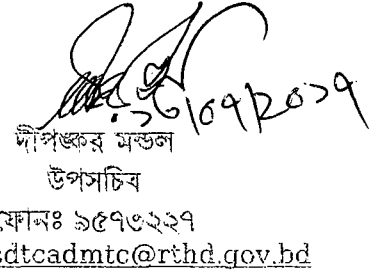 ১৬/০৭/২০১৭
দীপঙ্কর মন্ডল
উপসচিব
ফোনঃ ৯৫৭৩২২৭
sdtcadmtc@rthd.gov.bd